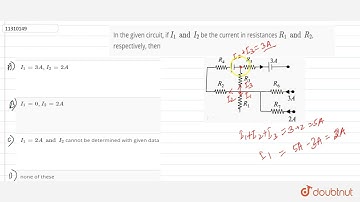 11310149
In the given circuit, if I₁ and I₂ be the current in resistances R₁ and R₂,
respectively, then
I₂+I₃=3A
3A
I₁ = 3A, I₂ = 2A
I₁ = 0, I₂ = 2A
I₁ = 2A and I₂ cannot be determined with given data
none of these
R₁
I₃
I₂
I₁
2A
3A
I₁+I₂+I₃ = 3+2=5A
I₁ = 5A-3A=2A
doubtnut